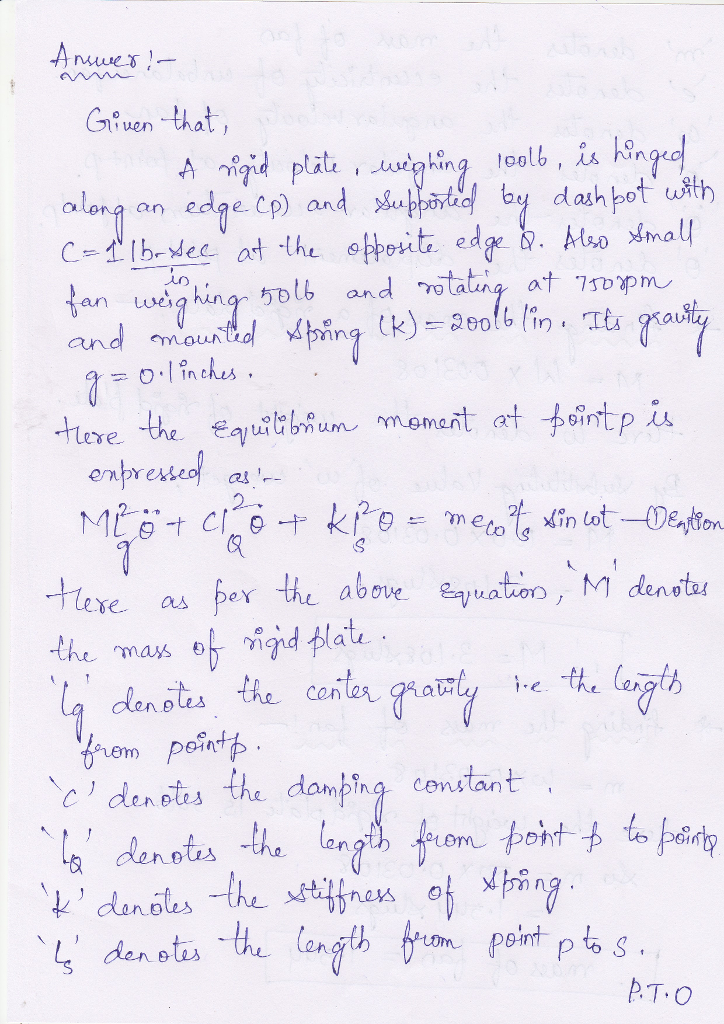 Answer :-
Given that,
A rigid plate, weighing 100lb, is hinged
along an edge (P) and supported by dashpot with
C = 1 lb-sec/in at the opposite edge Q. Also small
fan weighing 50lb and rotating at 750rpm
and mounted spring (k) = 200lb/in. Its gravity
g = 0.1 inches.
Here the equilibrium moment at point p is
expressed as :-
Ml²gӪ + Cl²Qθ̇ + kl²sθ = meω²ls sin ωt — ① Eqtion
Here as per the above equation, 'M' denotes
the mass of rigid plate.
'lg' denotes the center gravity i.e. the length
from point p.
'c' denotes the damping constant.
'lQ' denotes the length from point p to point Q
'k' denotes the stiffness of spring.
'ls' denotes the length from point p to s.
P.T.O